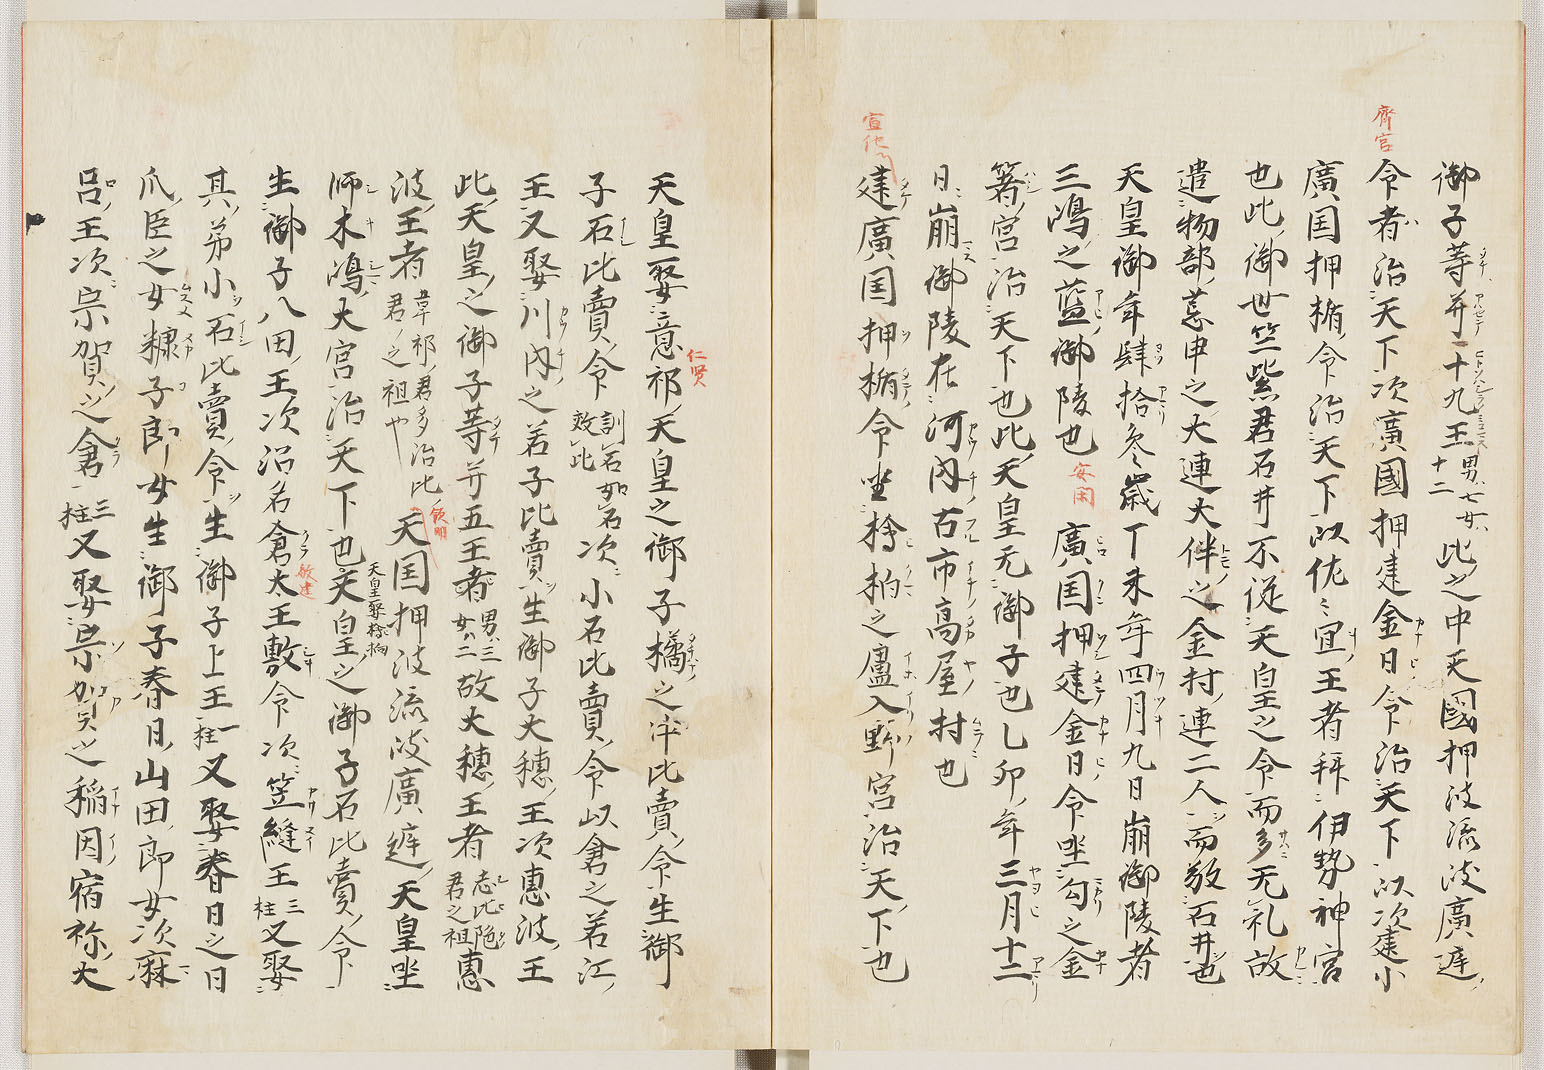 齊宮
御子等并十九王男七女十二此之中天國押波流波廣庭
令者治天下次廣國押建金日令治天下以次建小
廣国押楯令治天下以佐々宜王者拜伊勢神宮
也此御世竺紫君石井不従天皇之令而多无礼故
遣物部荒甲之大連大伴之金村連二人而敬石井也
天皇御年肆拾参歳丁未年四月九日崩御陵者
三嶋之藍御陵也
安閑
廣国押建金日令坐勾之金
箸宮治天下也此天皇无御子也乙卯年三月十三
日崩御陵在河内古市高屋村也
宣化
建廣国押楯令坐檜柏之廬入野宮治天下也
天皇娶意祁天皇之御子橘之中比賣令生御
仁賢
子石比賣令訓石如石效此次小石比賣令次倉之若江
王又娶川内之若子比賣生御子大穂王次恵波王
此天皇之御子等并五王者男三女二故火穂王者志比陀君之祖恵
波王者韋祁君多治比君之祖也
欽明
天国押波流波廣庭天皇坐
師木嶋大宮治天下也天皇娶檜柏天皇之御子石比賣令
生御子八田王次沼名倉太王敷令次笠縫王三柱又娶
敏達
其弟小石比賣令生御子上王一柱又娶春日之日
爪臣之女糠子郎女生御子春日山田郎女次麻
呂王次宗賀之倉三柱又娶宗賀之稲因宿祢大